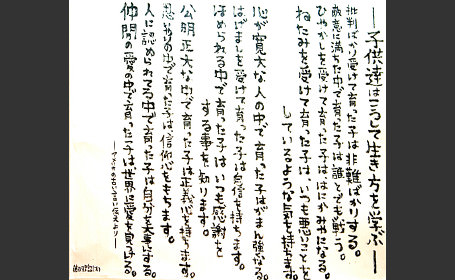 ―子供達はこうして生き方を学ぶ―
批判ばかり受けて育った子は非難ばかりする。
敵意に満ちた中で育った子は誰とでも戦う。
ひやかしを受けて育った子ははにかみやになる。
ねたみを受けて育った子は、いつも悪いことを
しているような気を持ちます。
心が寛大な人の中で育った子はがまん強くなる。
はげましを受けて育った子は自信を持ちます。
ほめられる中で育った子はいつも感謝を
する事を知ります。
公明正大な中で育った子は正義心を持ちます。
思いやりの中で育った子は、信仰心をもちます。
人に認めてもらえる中で育った子は自分を大事にする。
仲間の愛の中で育った子は世界に愛を見つける。